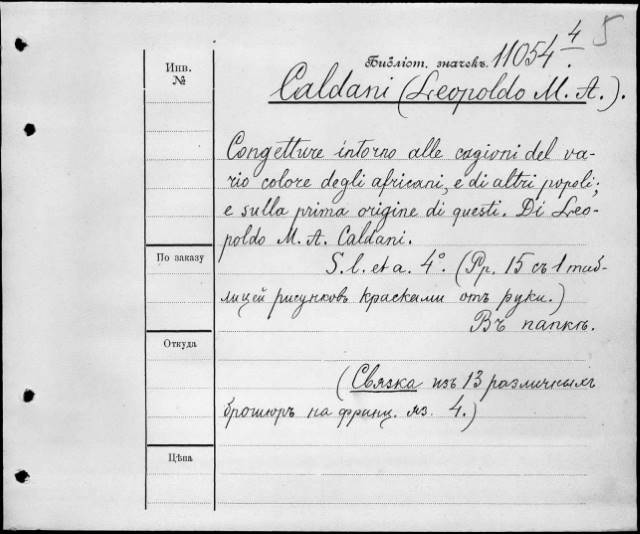 4 5
Инв. №
Библіот. значекъ. 11054.
Caldani (Leopoldo M. A.).
Congetture intorno alle cagioni del va-
rio colore degli africani, e di altri popoli;
e sulla prima origine di questi. Di Leo-
poldo M. A. Caldani.
По заказу
S. l. et a. 4°. (Pp. 15 съ 1 таб-
лицей рисунковъ красками отъ руки.)
Въ папкѣ.
Откуда
(Связка изъ 13 различныхъ
брошюръ на франц. яз. 4.)
Цѣна